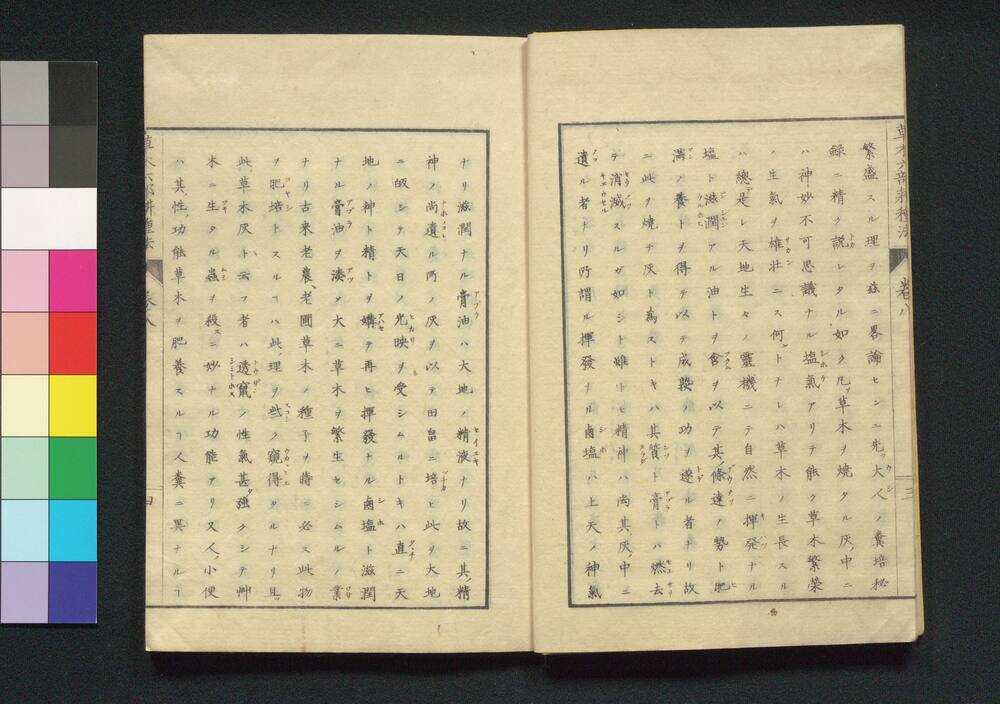 草木六部耕種法 巻八 三
繁盛スル理ヲ茲ニ畧論センニ先ッ大人ノ糞培秘
録ニ精ク説レタル如ク凡ッ草木ヲ焼タル灰ノ中ニ
ハ神妙不可思議ナル塩氣アリテ能ク草木繁榮
ノ生氣ヲ雄壮ニス何トナレハ草木ノ生長スル
ハ總テ是レ天地生々ノ靈機ニテ自然ニ揮発ナル
塩ト滋潤アル油トヲ含ヲ以テ其條達ノ勢ト肥
満ノ養トヲ得テ以テ成藙ノ功ヲ遂ル者ナリ故
ニ此ヲ焼テ灰ト為ストキハ其質ト膏トハ燃去
テ消滅スルガ如シト雖トモ精神ハ尚其灰ノ中ニ
遺ル者ナリ所謂ル揮發ナル鹵塩ハ上天ノ神氣
ナリ滋潤ナル膏油ハ大地ノ精液ナリ故ニ其精
神ノ尚遺ル所ノ灰ヲ以テ田畠ニ培ヒ此ヲ大地
ニ皈シテ天日ノ光映ヲ受シムルトキハ直ニ天
地ノ神ト精トヲ媾テ再ヒ揮發ナル鹵塩ト滋潤
ナル膏油ヲ湊メ大ニ草木ヲ繁生セシムルノ業
ナリ古来老農老圃草木ノ種子ヲ蒔ニ必ス此物
ヲ肥培トスルヿハ此理ヲ些ク窺得タルナリ且
此草木灰ト云フ者ハ透竄ノ性氣甚タ強クシテ艸
木ニ生タル蟲ヲ殺スニ妙ナル功能アリ又人ノ小便
ハ其性功能草木ヲ肥養スルヿ人糞ニ異ナルヿ
草木六部耕種法 巻八 四